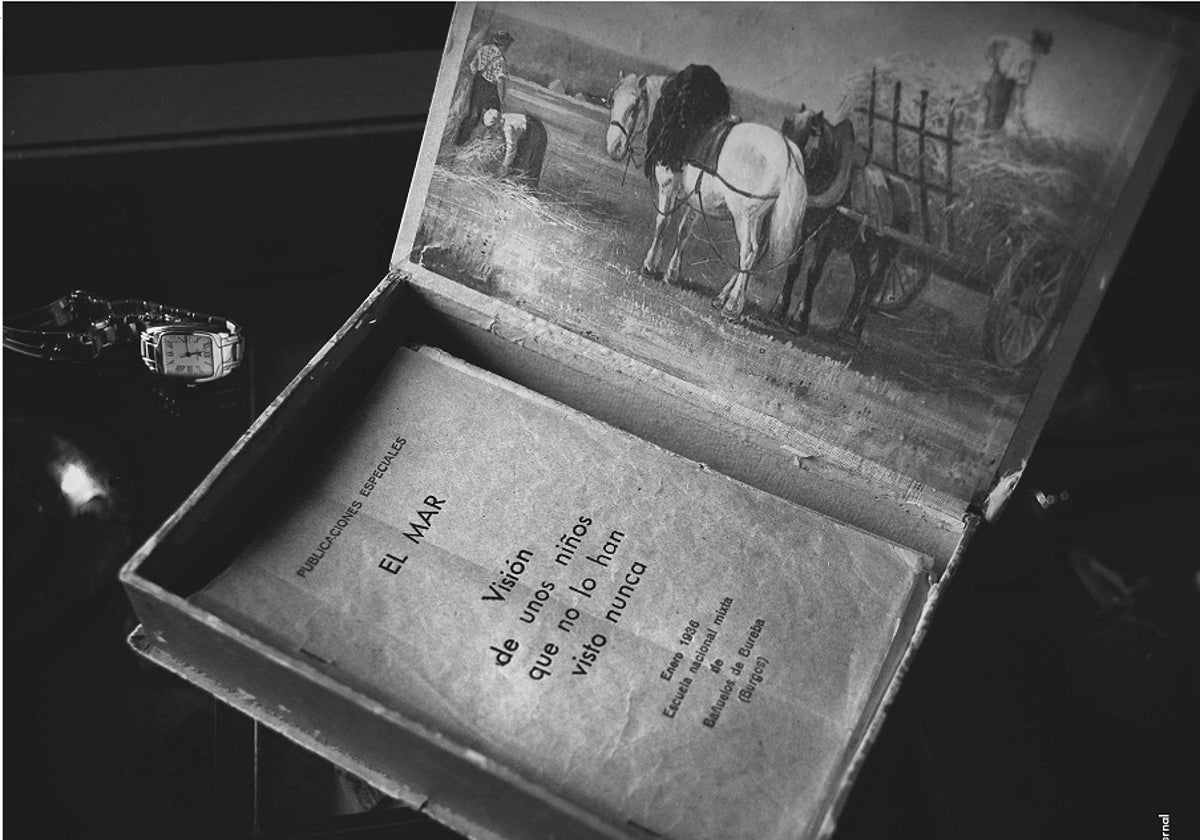 PUBLICACIONES ESPECIALES
EL MAR
Visión
de unos niños
que no lo han
visto nunca
Enero 1936
Escuela nacional mixta
de
Bañuelos de Bureba
(Burgos)